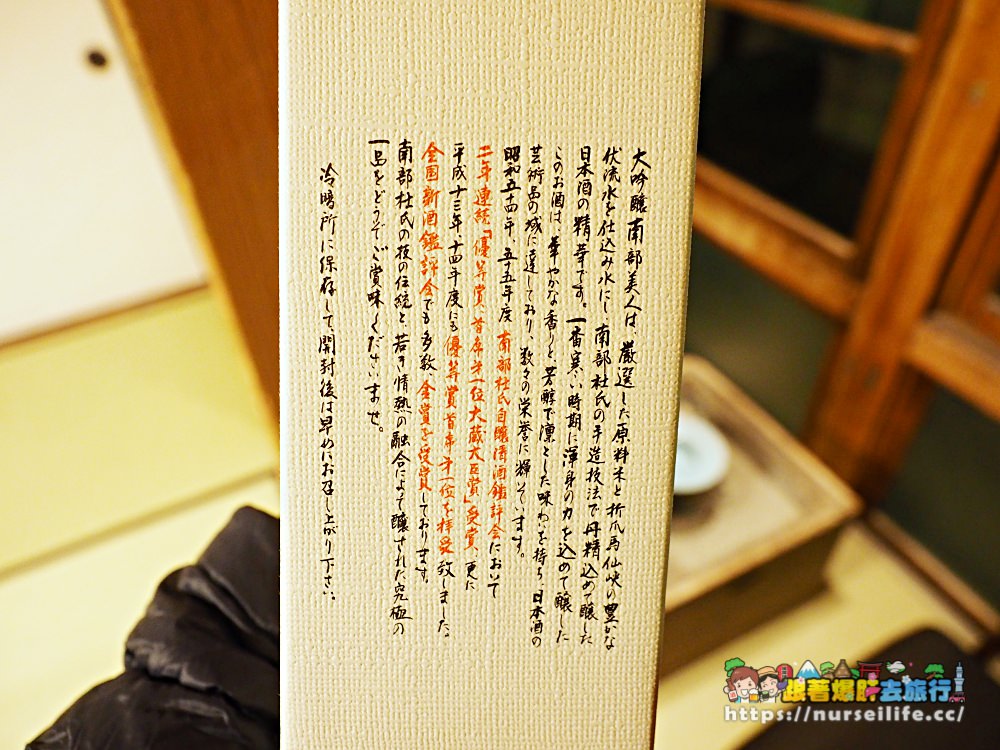 大吟醸南部美人は、厳選した原料米と折爪馬仙峡の豊かな
伏流水を仕込み水にし、南部杜氏の手造技法で丹精込めて醸した
日本酒の精華です。一番寒い時期に渾身の力を込めて醸した
このお酒は、華やかな香りと、芳醇で凛とした味わいを持ち、日本酒の
芸術品の域に達しており、数々の栄誉に輝いています。
昭和五十四年、五十五年度 南部杜氏自醸清酒鑑評会において
二年連続「優等賞 首席第一位大蔵大臣賞」受賞、更に
平成十三年、十四年度にも優等賞首席第一位を拝受致しました。
全国新酒鑑評会でも多数、金賞を受賞しております。
南部杜氏の技の伝統と、若き情熱の融合によって醸された究極の
一品をどうぞご賞味くださいませ。
冷暗所に保存して、開封後は早めにお召し上がり下さい。
跟著爆肝去旅行
https://nurseilife.cc/